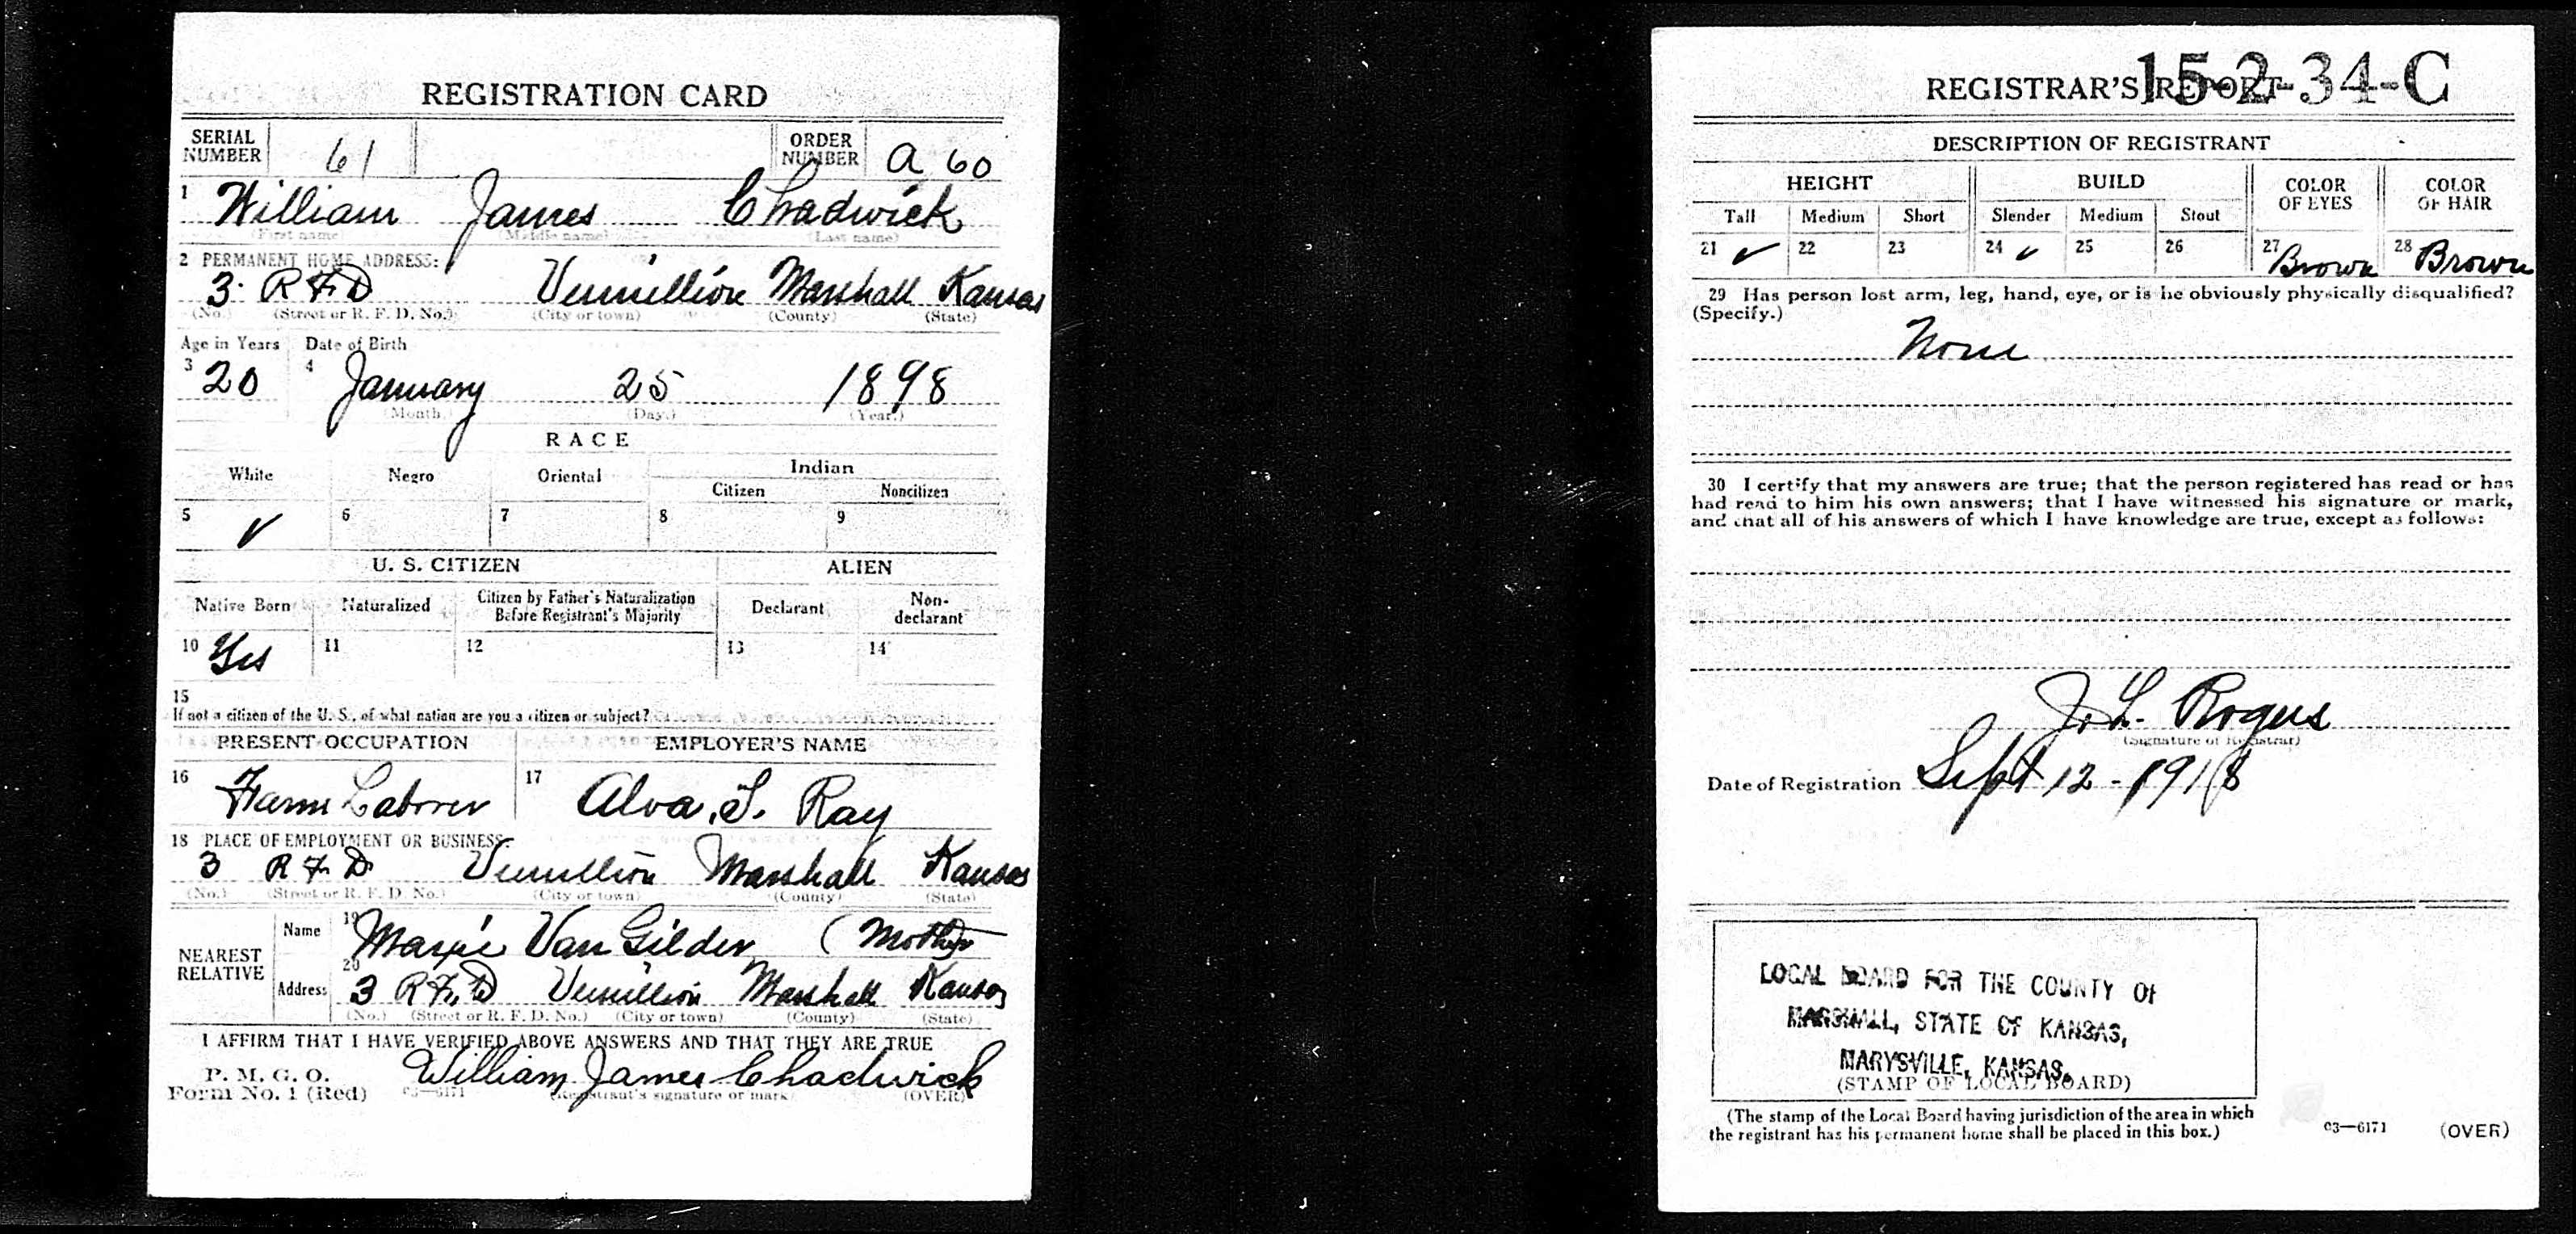 REGISTRATION CARD
SERIAL NUMBER 61 ORDER NUMBER A 60
1 William James Chadwick
(First name) (Middle name) (Last name)
2 PERMANENT HOME ADDRESS:
3. R F D Vermillion Marshall Kansas
(No.) (Street or R. F. D. No.) (City or town) (County) (State)
Age in Years Date of Birth
3 20 4 January 25 1898
(Month.) (Day.) (Year.)
RACE
White Negro Oriental Indian
Citizen Noncitizen
5 ✓ 6 7 8 9
U. S. CITIZEN ALIEN
Native Born Naturalized Citizen by Father's Naturalization Before Registrant's Majority Declarant Non-declarant
10 Yes 11 12 13 14
15
If not a citizen of the U. S., of what nation are you a citizen or subject?
PRESENT OCCUPATION EMPLOYER'S NAME
16 Farm Laborer 17 Alva. S. Ray
18 PLACE OF EMPLOYMENT OR BUSINESS:
3 R F D Vermillion Marshall Kansas
(No.) (Street or R. F. D. No.) (City or town) (County) (State)
NEAREST RELATIVE
Name 19 Van Gilder (Mother
Address 20 3 R F. D Vermillion Marshall Kansas
(No.) (Street or R. F. D. No.) (City or town) (County) (State)
I AFFIRM THAT I HAVE VERIFIED ABOVE ANSWERS AND THAT THEY ARE TRUE
P. M. G. O.
Form No. 1 (Red) 03—6171 William James Chadwick
(Registrant's signature or mark) (OVER)
15-2-34-C
REGISTRAR'S REPORT
DESCRIPTION OF REGISTRANT
HEIGHT BUILD COLOR OF EYES COLOR OF HAIR
Tall Medium Short Slender Medium Stout
21 ✓ 22 23 24 ✓ 25 26 27 Brown 28 Brown
29 Has person lost arm, leg, hand, eye, or is he obviously physically disqualified?
(Specify.)
None
30 I certify that my answers are true; that the person registered has read or has
had read to him his own answers; that I have witnessed his signature or mark,
and that all of his answers of which I have knowledge are true, except as follows:
J. L. Rogers
(Signature of Registrar)
Date of Registration Sept 12 - 1918
LOCAL BOARD FOR THE COUNTY OF
MARSHALL, STATE OF KANSAS,
MARYSVILLE, KANSAS.
(STAMP OF LOCAL BOARD)
(The stamp of the Local Board having jurisdiction of the area in which
the registrant has his permanent home shall be placed in this box.)
03—6171 (OVER)